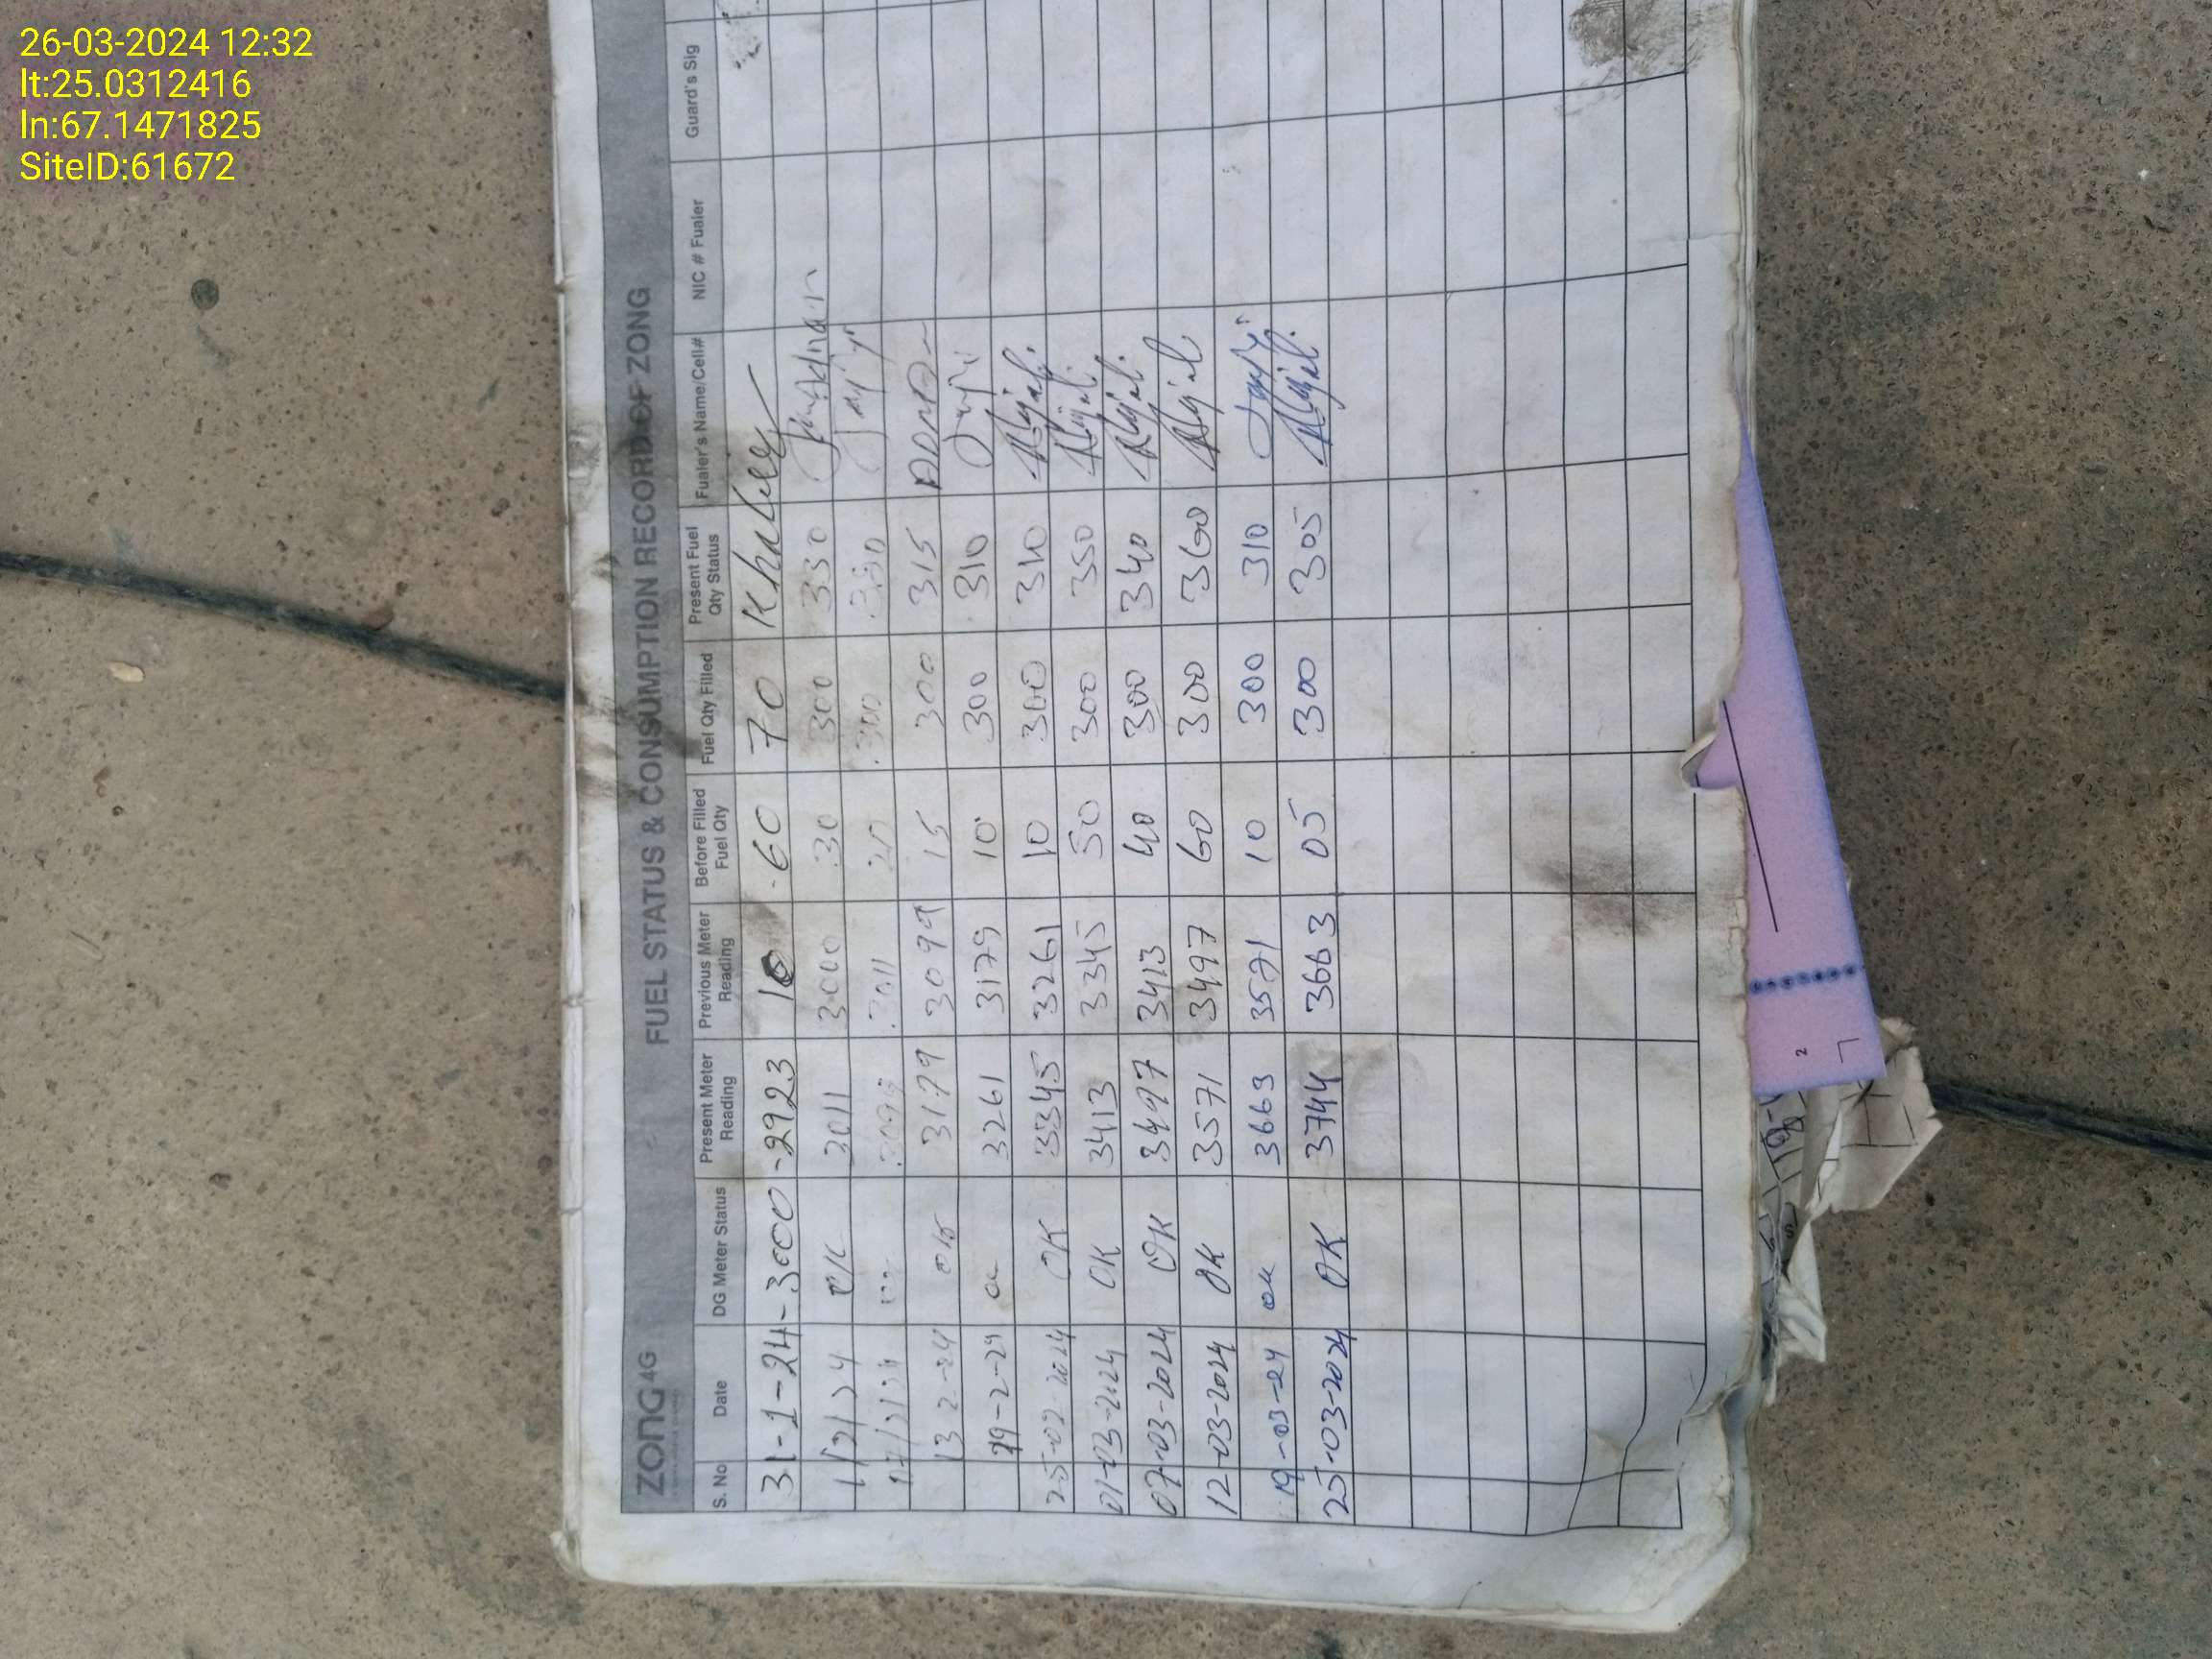 26-03-2024 12:32
lt:25.0312416
ln:67.1471825
SiteID:61672
ZONG 4G FUEL STATUS & CONSUMPTION RECORD OF ZONG
S. No Date DG Meter Status Present Meter Reading Previous Meter Reading Before Filled Fuel Qty Fuel Qty Filled Present Fuel Qty Status Fualer's Name/Cell# NIC # Fualer Guard's Sig
31-1-24-3000-2923 10 60 70
1/2/24 OK 3011 3000 30 300 330 Adnan
3011 300
13 2-24 OK 3179 3099 15 300 315 Adnan
19-2-24 3261 3179 10 300 310
25-02-2024 OK 3345 3261 10 300 310
01-03-2024 OK 3413 3345 50 300 350
07-03-2024 OK 3497 3413 40 300 340
12-03-2024 OK 3571 3497 60 300 360
19-03-24 OK 3663 3571 10 300 310
25-03-2024 OK 3744 3663 05 300 305